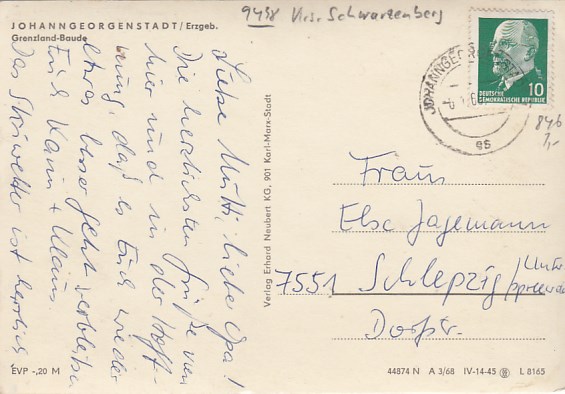 JOHANNGEORGENSTADT / Erzgeb.
Grenzland-Baude
9438 Krs. Schwarzenberg
DEUTSCHE
DEMOKRATISCHE REPUBLIK
10
JOHANNGEORGENSTADT
es
846
1,-
Liebe Mutti, liebe Opa!
Die herzlichsten Grüße von
hier und in der Hoff-
nung, daß es Euch wieder
etwas besser geht verbleiben
Euch Karin + Klaus.
Das Skiwetter ist herrlich
Verlag Erhard Neubert KG, 901 Karl-Marx-Stadt
Frau
Else Jagemann
7551 Schlepzig / Unter-
spreewald
Dorfstr.
EVP -,20 M
44874 N A 3/68 IV-14-45 L 8165